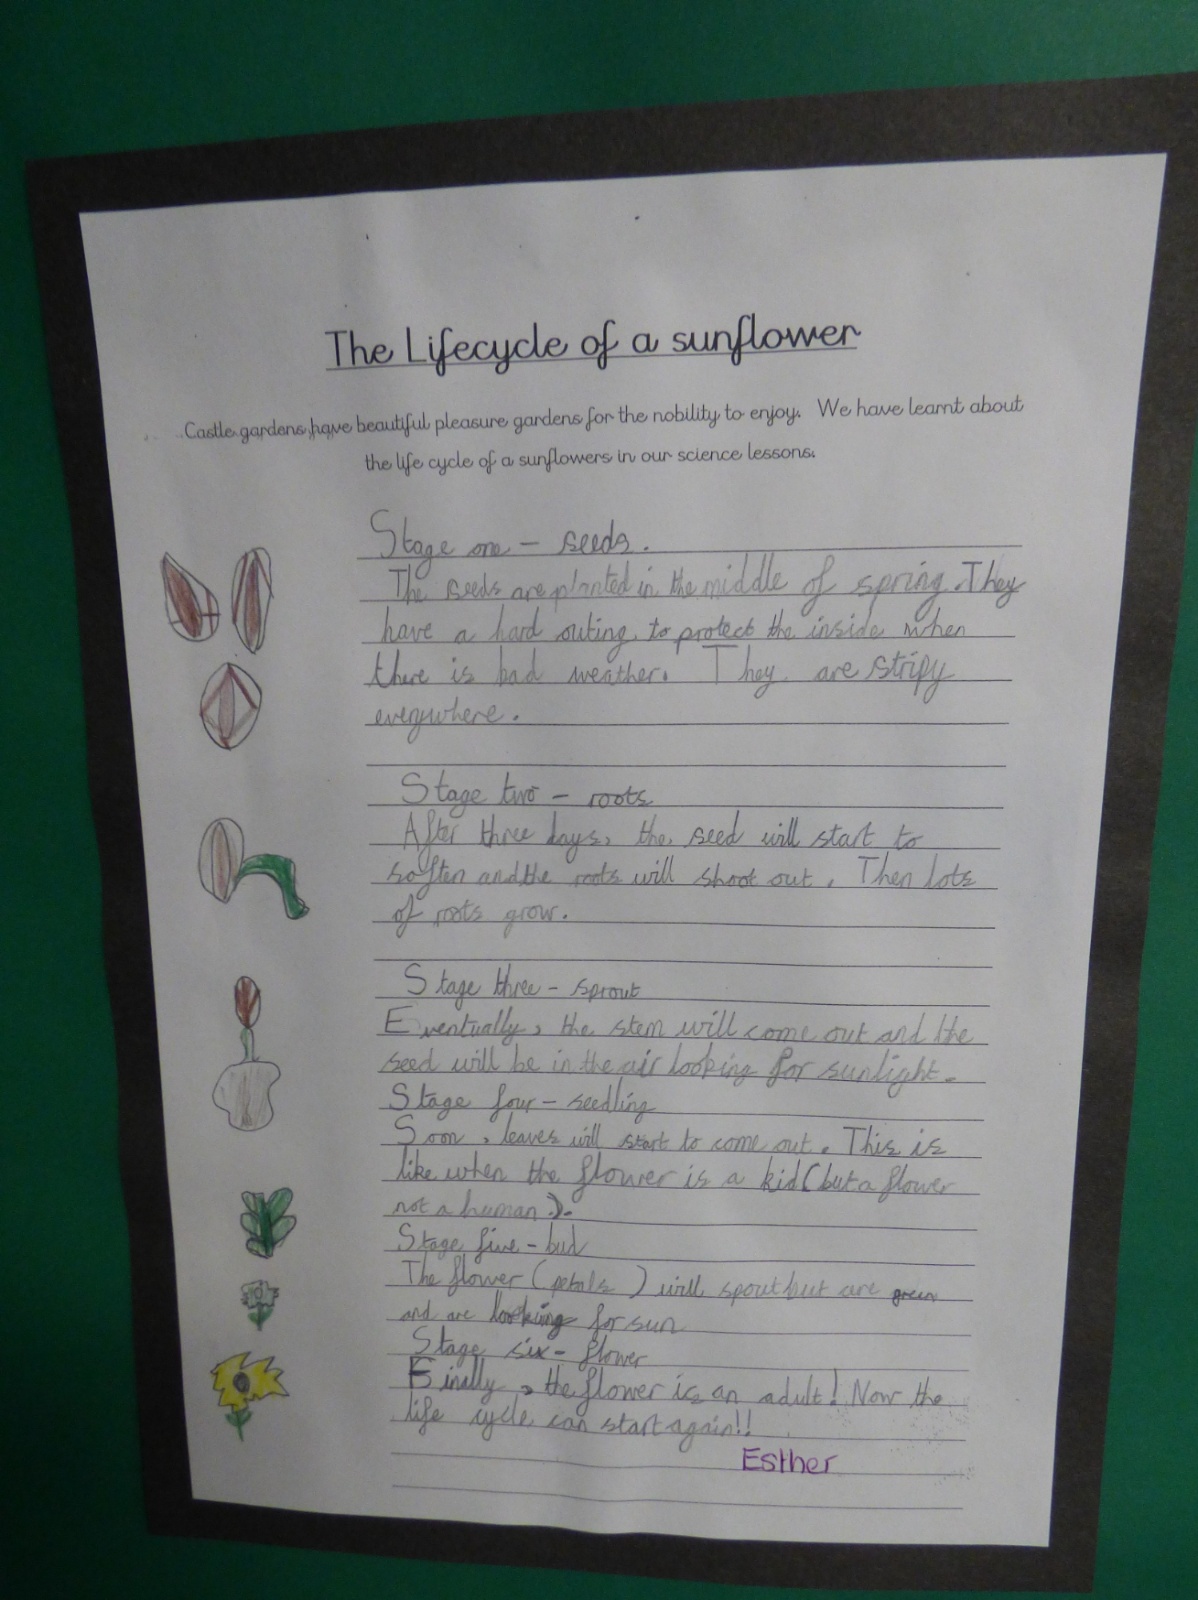 The Lifecycle of a sunflower
Castle gardens have beautiful pleasure gardens for the nobility to enjoy. We have learnt about
the life cycle of a sunflowers in our science lessons.
Stage one - seeds.
The seeds are planted in the middle of spring. They
have a hard outing to protect the inside when
there is bad weather. They are stripy
everywhere.
Stage two - roots
After three days, the seed will start to
soften and the roots will shoot out. Then lots
of roots grow.
Stage three - sprout
Eventually, the stem will come out and the
seed will be in the air looking for sunlight.
Stage four - seedling
Soon, leaves will start to come out. This is
like when the flower is a kid (but a flower
not a human).
Stage five - bud
The flower (petals) will spout but are green
and are looking for sun
Stage six - flower
Finally, the flower is an adult! Now the
life cycle can start again!!
Esther